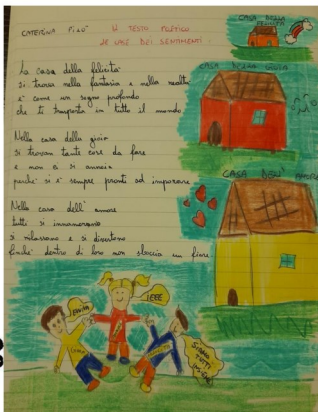 CATERINA
IL TESTO POETICO
LE CASE DEI SENTIMENTI
CASA DELLA FELICITÀ
La casa della felicità
si trova nella fantasia e nella realtà
è come un sogno profondo
che ti trasporta in tutto il mondo
CASA DELLA GIOIA
Nella casa della gioia
si trovan tante cose da fare
e non ci si annoia
perché si è sempre pronti ad imparare
CASA DELL' AMORE
Nella casa dell' amore
tutti si innamorano
si rilassano e si divertono
finché dentro di loro non sboccia un fiore
EVVIVA
IEEE
SIAMO TUTTI